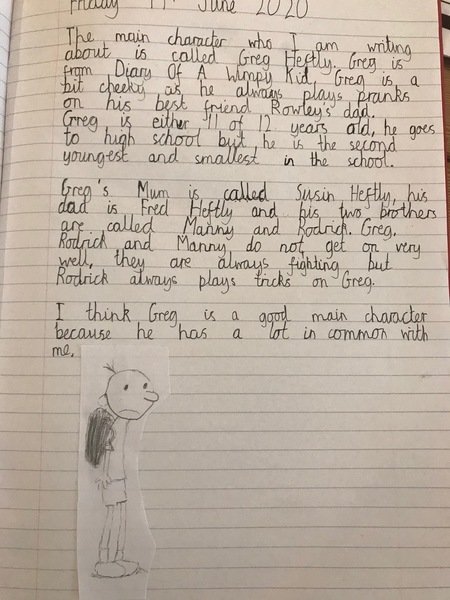 Friday June 2020
The main character who I am writing
about is called Greg Heftly. Greg is
from Diary Of A Wimpy Kid. Greg is a
bit cheeky as he always plays pranks
on his best friend Rowley's dad.
Greg is either 11 of 12 years old, he goes
to high school but he is the second
youngest and smallest in the school.
Greg's Mum is called Susin Heftly, his
dad is Fred Heftly and his two brothers
are called Manny and Rodrick. Greg,
Rodrick and Manny do not get on very
well, they are always fighting but
Rodrick always plays tricks on Greg.
I think Greg is a good main character
because he has a lot in common with
me.